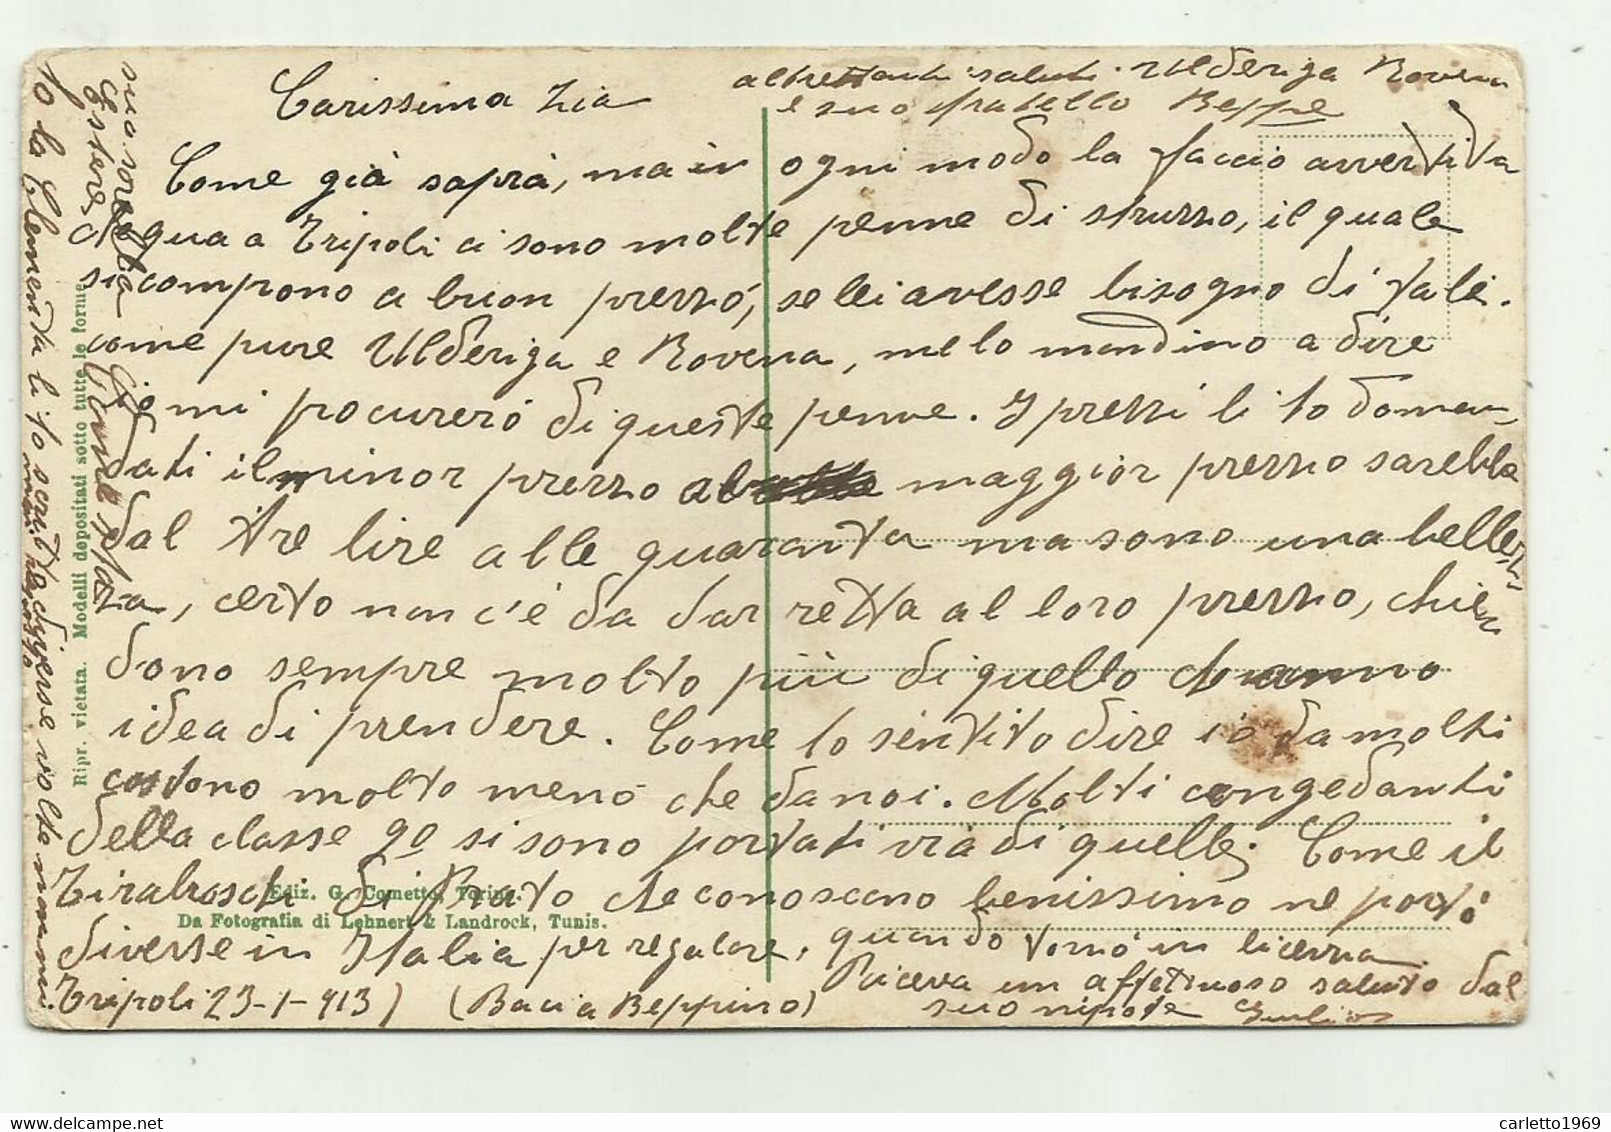 Carissima Zia
altrettanti saluti Ulderiga Rovena
e suo fratello Beppe
Come già saprà, ma in ogni modo la faccio avvertita
che qua a Tripoli ci sono molte penne di struzzo, il quale
si compono a buon prezzo, se lei avesse bisogno di tale.
come pure Ulderiga e Rovena, me lo mandino a dire
io mi procurerò di queste penne. I prezzi li ló doman-
dati il minor prezzo al maggior prezzo sarebbe
dal tre lire alle quaranta ma sono una bellez-
za, certo non c'è da dar retta al loro prezzo, chie
dono sempre molto più di quello ch anno
idea di prendere. Come lo sentito dire io da molti
costono molto meno che da noi. Molti congedanti
della classe 90 si sono portati via di quelle. Come il
Tirabroschi di Prato che conoscano benissimo ne portò
diverse in Italia per regalare, quando tornò in licenza
Riceva un affettuoso saluto dal
suo nipote Giulio
Tripoli 23-1-913) (Bacia Beppino)
Io la Clementa li ió scritto diverse volte ma mi
suo sorella
Estere
Ripr. vietata. Modelli depositati sotto tutte le forme
Ediz. G. Cometto, Torino.
Da Fotografia di Lehnert & Landrock, Tunis.
carletto1969